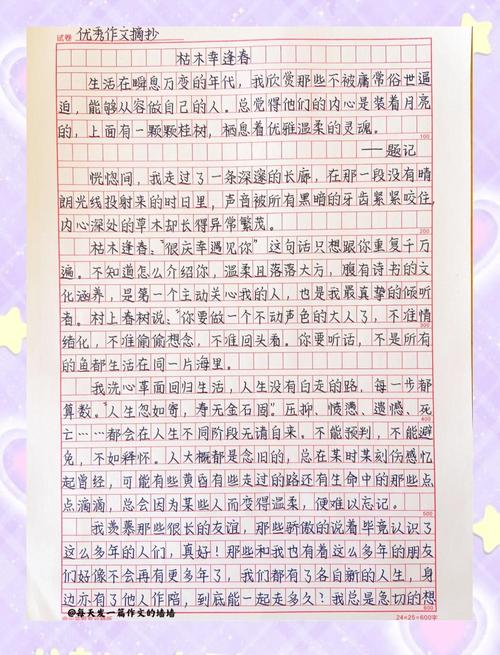 试卷 优秀作文摘抄
枯木幸逢春
生活在瞬息万变的年代，我欣赏那些不被庸常俗世逼
迫，能够从容做自己的人。总觉得他们的内心是装着月亮
的，上面有一颗颗桂树，栖息着优雅温柔的灵魂。
100
——题记
恍惚间，我走过了一条深邃的长廊，在那一段没有晴
朗光线投射来的时日里，声音被所有黑暗的牙齿紧紧咬住，
内心深处的草木却长得异常繁茂。
200
枯木逢春，“很庆幸遇见你”这句话只想跟你重复千万
遍。不知道怎么介绍你，温柔且落落大方，腹有诗书的文
化涵养，是第一个主动关心我的人，也是我最真挚的倾听
者。村上春树说：“你要做一个不动声色的大人了，不准情
绪化，不准偷偷想念，不准回头看。你要听话，不是所有
的鱼都生活在同一片海里。
我洗心革面回归生活，人生没有白走的路，每一步都
算数。“人生忽如寄，寿无金石固”。压抑、愤懑、遗憾、死
亡……都会在人生不同阶段无请自来。不能预判，不能避
免，不如释怀。人大概都是念旧的，总在某时某刻伤感忆
起曾经，可能有些黄昏有些走过的路还有生命中的那些点
点滴滴，总会因为某些人而变得温柔，便难以忘记。
500
我羡慕那些很长的友谊，那些骄傲的说着毕竟认识了
这么多年的人们，真好！那些和我也有着这么多年的朋友
们好像不会再有更多年了，我们都有了各自新的人生，身
边亦有了他人作陪，到底能一起走多久？我总是急切的想
600
@每天发一篇作文的墙墙
24×25=600字